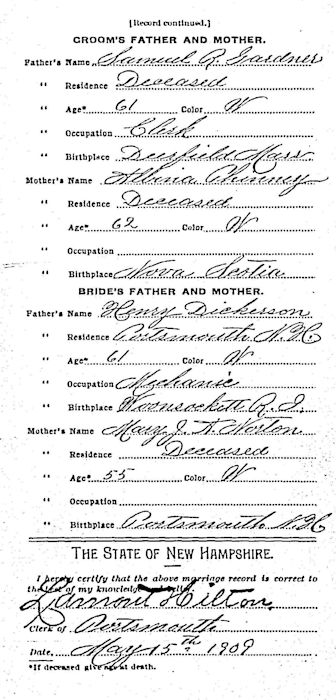 [Record continued.]
GROOM'S FATHER AND MOTHER.
Father's Name Samuel R. Gardner
" Residence Deceased
" Age* 61 Color W
" Occupation Clerk
" Birthplace Deerfield Mass.
Mother's Name Albina Phinney
" Residence Deceased
" Age* 62 Color W
" Occupation
" Birthplace Nova Scotia
BRIDE'S FATHER AND MOTHER.
Father's Name Henry Dickerson
" Residence Portsmouth N.H.
" Age* 61 Color W
" Occupation Mechanic
" Birthplace Woonsockett R.I.
Mother's Name Mary J. A. Norton
" Residence Deceased
" Age* 55 Color W
" Occupation
" Birthplace Portsmouth N.H.
THE STATE OF NEW HAMPSHIRE.
I hereby certify that the above marriage record is correct to
the best of my knowledge and belief.
Lamont Hilton.
Clerk of Portsmouth
Date, May 15th 1909
*If deceased give age at death.